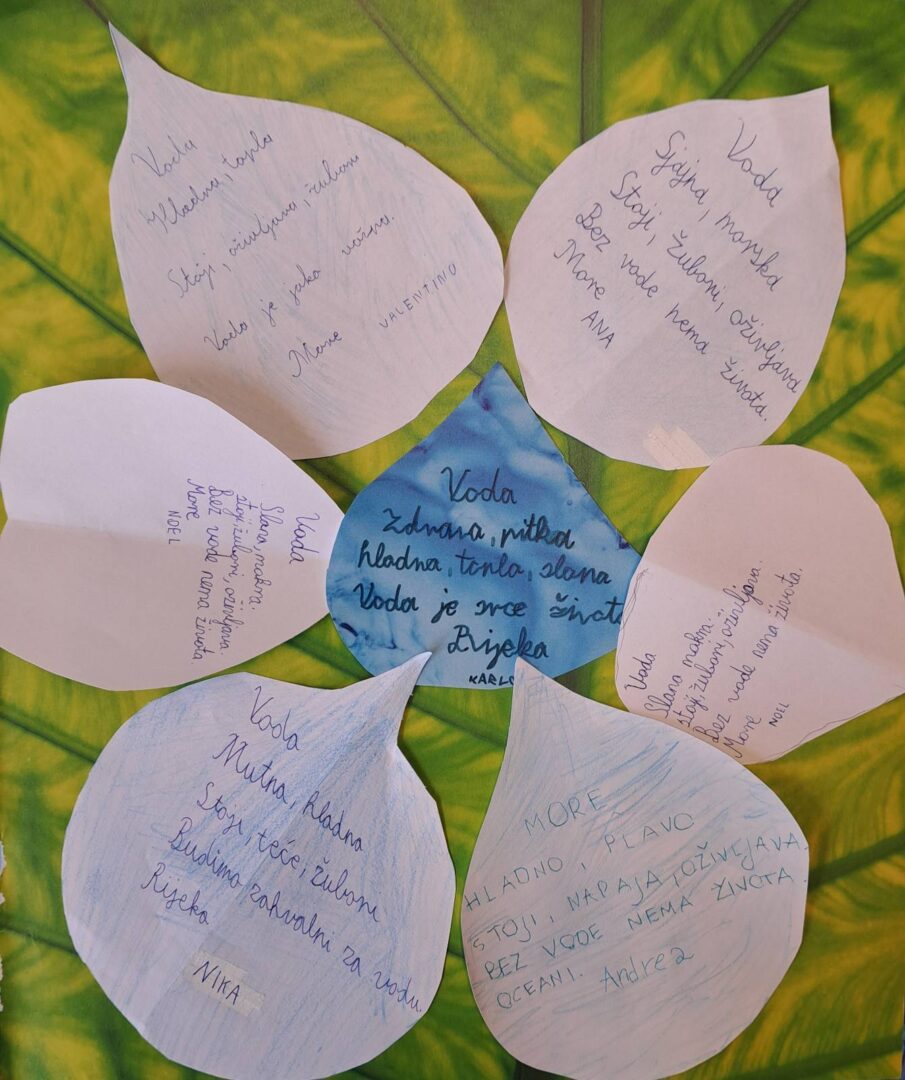 Voda
Hladna, topla
Stoji, oživljava, žubori
Voda je jako važna.
More
VALENTINO
Voda
Sjajna, morska
Stoji, žubori, oživljava
Bez vode nema života.
More
ANA
Voda
Slana, mokra.
stoji, žubori, oživljava.
Bez vode nema života.
More
NOEL
Voda
Zdrava, pitka
hladna, topla, slana
Voda je srce život
Rijeka
KARLO
Voda
Slana mokra.
stoji, žubori, oživljava.
Bez vode nema života.
More
NOEL
Voda
Mutna, hladna
Stoji, teče, žubori
Budimo zahvalni za vodu
Rijeka
NIKA
MORE
HLADNO I PLAVO
STOJI, NAPAJA, OŽIVLJAVA.
BEZ VODE NEMA ŽIVOTA
OCEANI.
Andrea